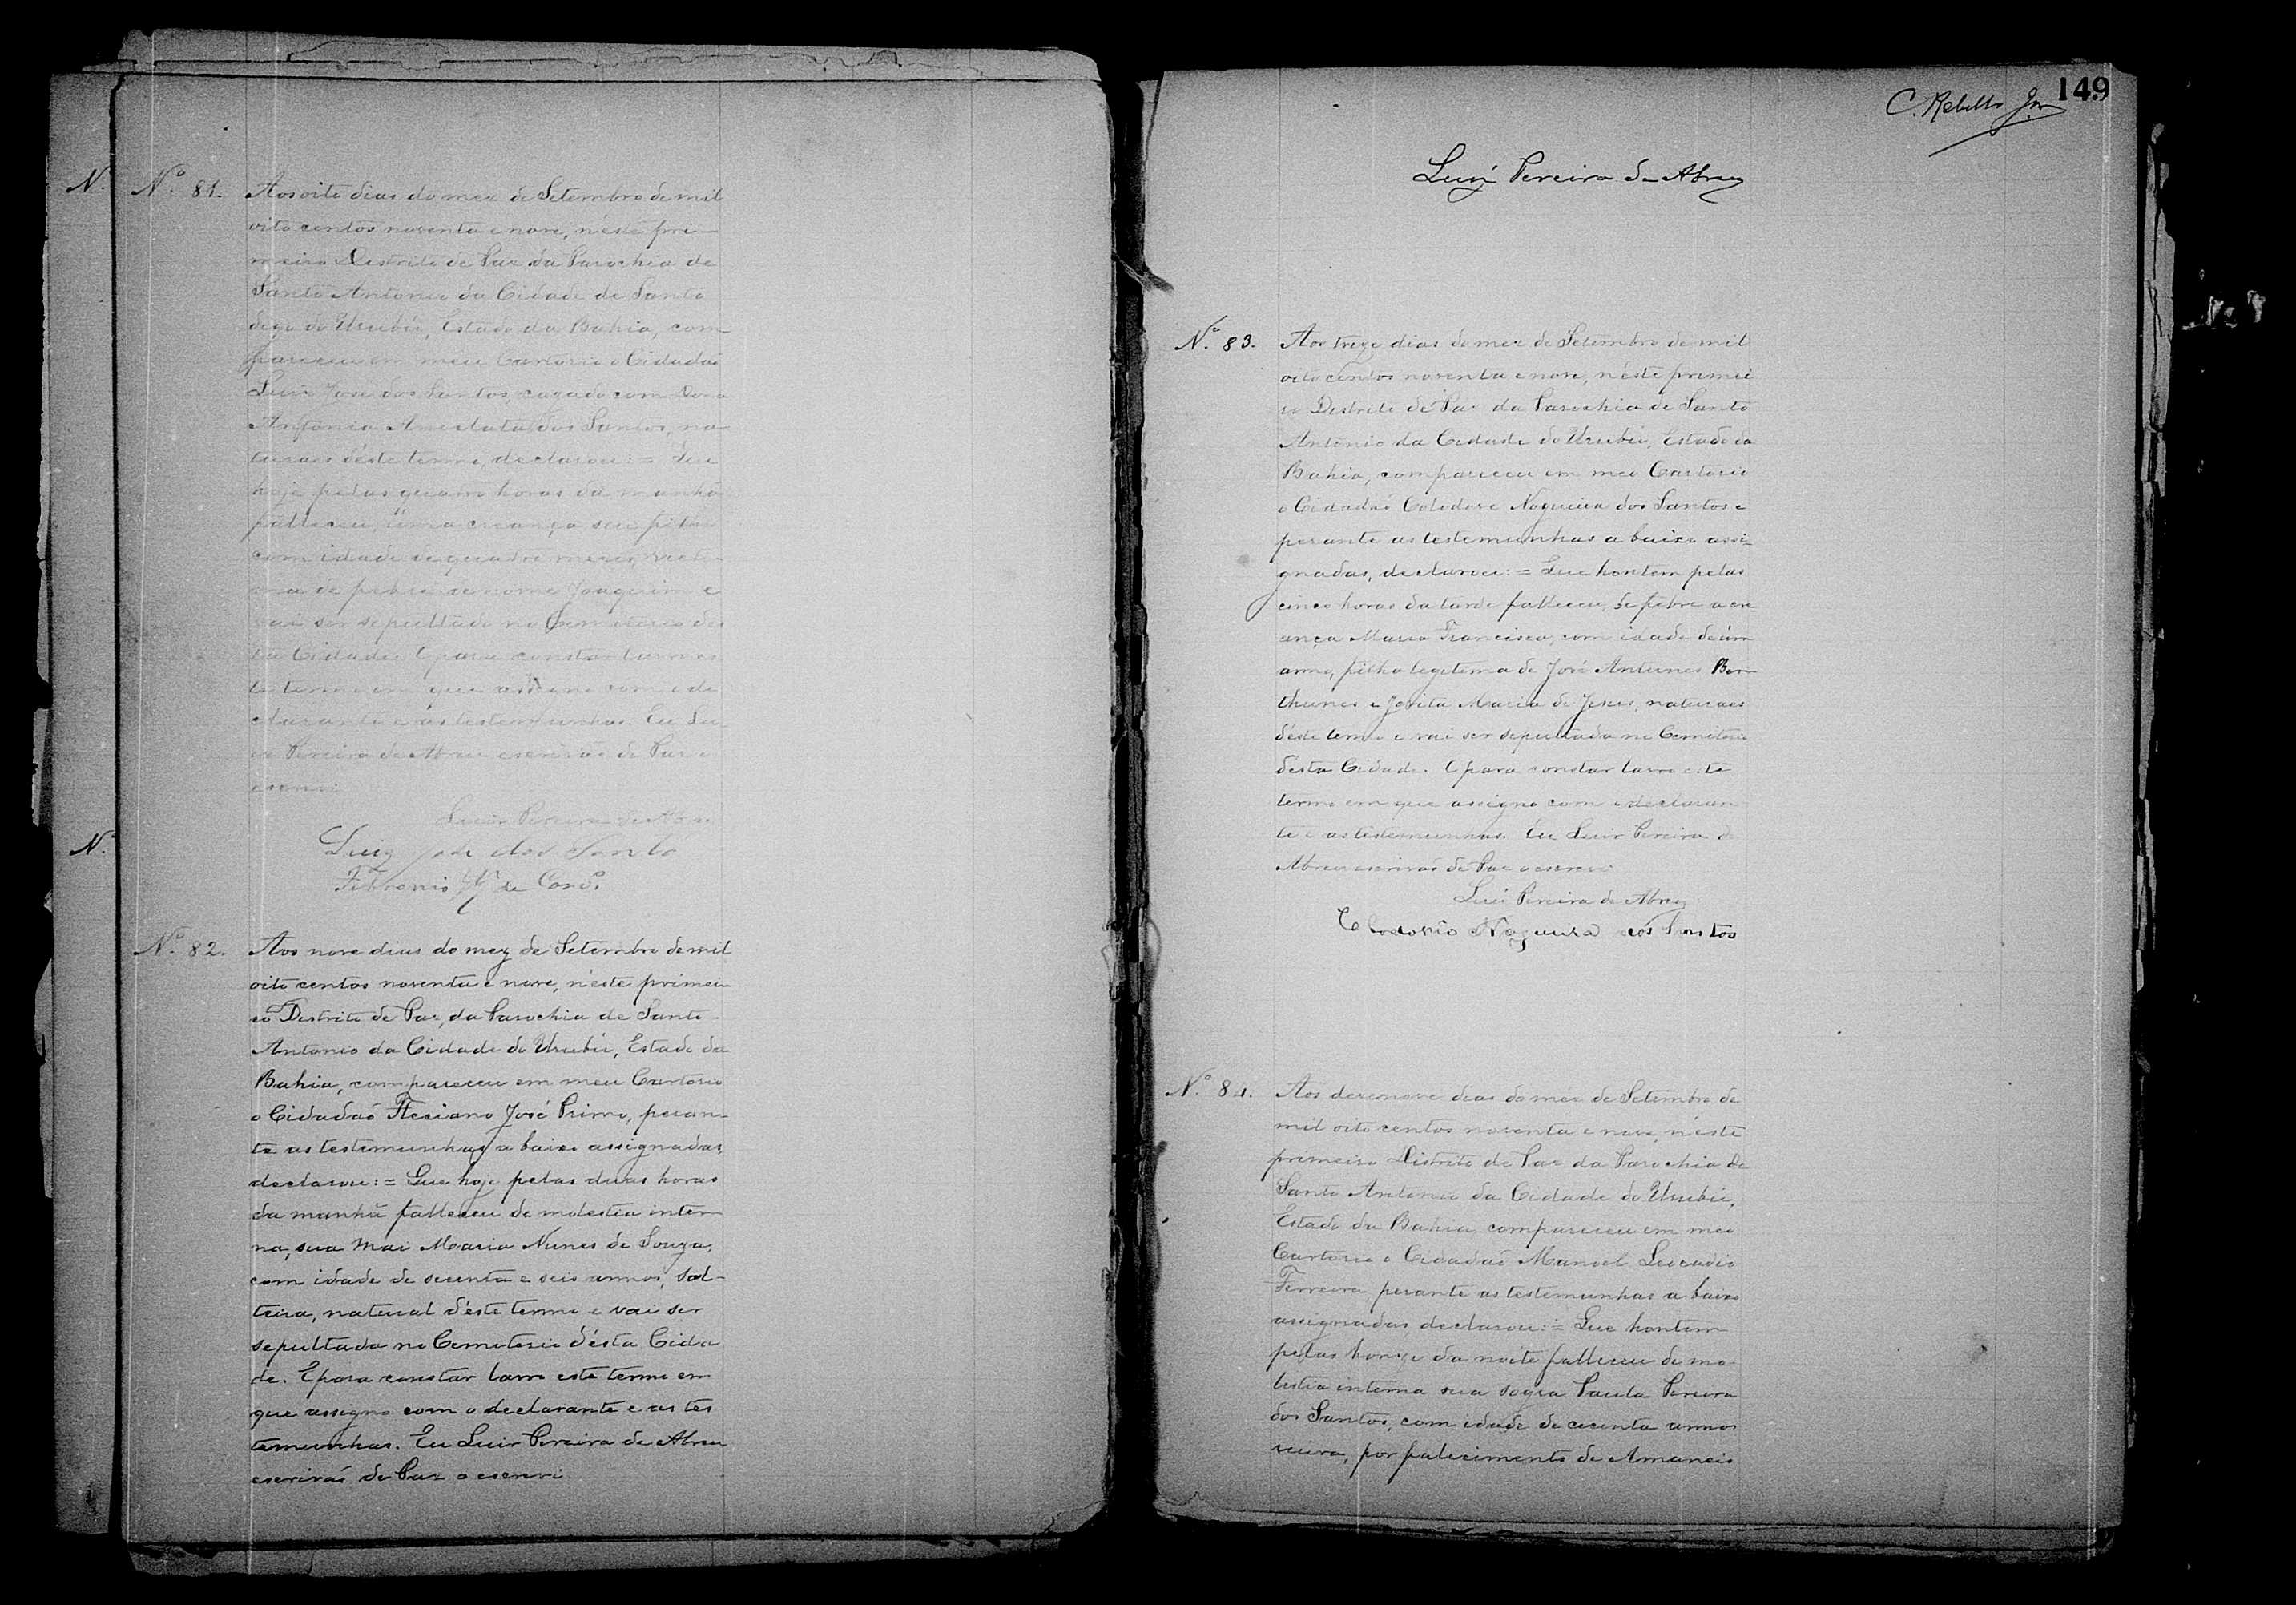 N.
N.º 81. Aos oito dias do mez de Setembro de mil
oito centos noventa e nove, n'éste pri-
meiro Destrito de Paz da Parochia de
Santo Antonio da Cidade de Santo
do Urubú, Estado da Bahia, com-
pareceu em meu Cartorio o Cidadaõ
Luiz José dos Santos, cazado com Dona
dos Santos, na-
turaes déste termo, declarou: = Que
hoje pelas quatro horas da manhã
falleceu, uma criança seu filho
com idade de quatro mezes,
de nome Joaquim e
vai ser sepultado no Cemiterio des
ta Cidade. E para constar lavro es
te termo em que assigno com o de
clarante e as testemunhas. Eu Lu-
iz Pereira de Abreu escrivaõ de Paz o
escrevi.
Luiz Pereira de Abreu
Luiz José dos Santo
N.
N.º 82. Aos nove dias do mez de Setembro de mil
oito centos noventa e nove, n'éste primei-
ro Destrito de Paz, da Parochia de Santo
Antonio da Cidade do Urubú, Estado da
Bahia, compareceu em meu Cartorio
o Cidadaõ José Primo, peran-
te as testemunhas a baixo assignadas,
declarou: = Que hoje pelas duas horas
da manhã falleceu de molestia inter-
na, sua Mai Maria Nunes de Souza,
com idade de secenta e seis annos, sol-
teira, natural d'éste termo e vai ser
sepultada no Cemiterio d'ésta Cida
de. E para constar lavro este termo em
que assigno com o declarante e as tes
temunhas. Eu Luiz Pereira de Abreu
escrivaõ de Paz o escrevi.
149
C. Rebello Jor
Luiz Pereira de Abreu
N.º 83. Aos treze dias do mez de Setembro de mil
oito centos noventa e nove, n'éste primei
ro Destrito de Paz da Parochia de Santo
Antonio da Cidade do Urubú, Estado da
Bahia, compareceu em meo Cartorio
o Cidadaõ Nogueira dos Santos e
perante as testemunhas a baixo assi-
gnadas, declarou: = Que hontem pelas
cinco horas da tarde falleceu, de febre a cre-
ança Maria Francisca, com idade de úm
anno, filha legitema de José Antunes
e Jovita Maria de Jesus, naturaes
d'éste termo e vai ser sepultada no Cemiterio
d'ésta Cidade. E para constar lavro este
termo em que assigno com o declaran
te e as testemunhas. Eu Luiz Pereira de
Abreu escrivaõ de Paz o escrevi.
Luiz Pereira de Abreu
Clodovio Nogueira dos Santos
N.º 84. Aos dezenove dias do méz de Setembro de
mil oito centos noventa e nove, n'éste
primeiro Distrito de Paz da Parochia de
Santo Antonio da Cidade do Urubú,
Estado da Bahia, compareceu em meo
Cartorio o Cidadaõ Manoel Leocadio
Ferreira, perante as testemunhas a baixo
assignadas, declarou: = Que hontem
pelas honze da noite falleceu de mo-
lestia interna sua sogra Paula Pereira
dos Santos, com idade de cecenta annos
viuva, por falecimento de Amancio